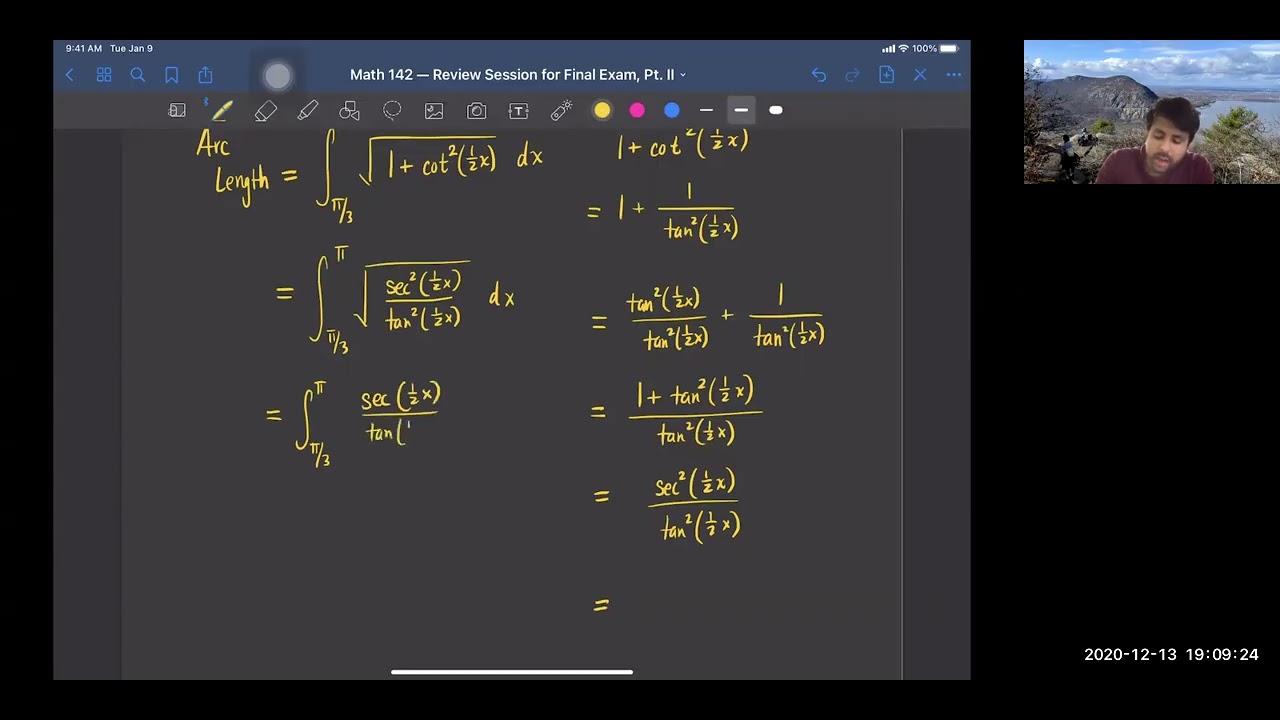 9:41 AM Tue Jan 9
100%
Math 142 — Review Session for Final Exam, Pt. II
T
Arc
Length = ∫_{π/3} √(1 + cot²(½x)) dx
= ∫_{π/3}^{π} √(sec²(½x)/tan²(½x)) dx
= ∫_{π/3}^{π} sec(½x)/tan(
1 + cot²(½x)
= 1 + 1/tan²(½x)
= tan²(½x)/tan²(½x) + 1/tan²(½x)
= (1 + tan²(½x))/tan²(½x)
= sec²(½x)/tan²(½x)
=
2020-12-13 19:09:24